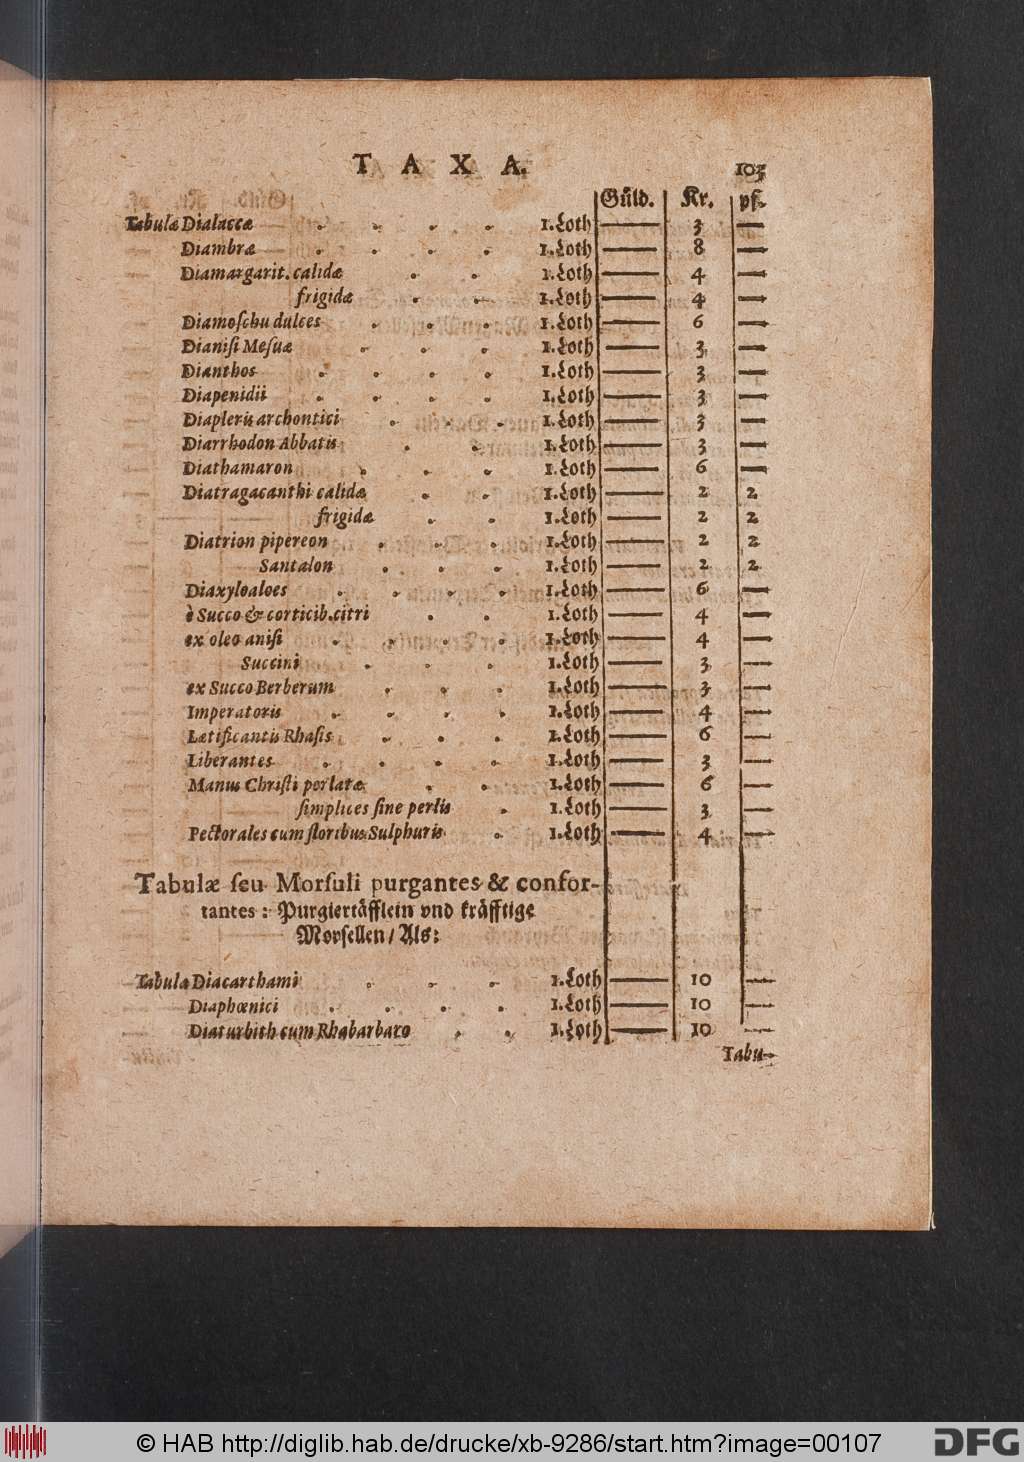 T A X A. 103
Güld. Kr. pf.
Tabulæ Dialaccæ . . . . 1. Loth — 3 —
Diambræ . . . . 1. Loth — 8 —
Diamargarit. calidæ . . 1. Loth — 4 —
frigidæ . . 1. Loth — 4 —
Diamoſchu dulces . . . 1. Loth — 6 —
Dianiſi Meſuæ . . . 1. Loth — 3 —
Dianthos . . . . 1. Loth — 3 —
Diapenidii . . . . 1. Loth — 3 —
Diapleris archontici . . . 1. Loth — 3 —
Diarrhodon Abbatis . . 1. Loth — 3 —
Diathamaron . . . 1. Loth — 6 —
Diatragacanthi calidæ . . 1. Loth — 2 2
frigidæ . . 1. Loth — 2 2
Diatrion pipereon . . . 1. Loth — 2 2
Santalon . . . 1. Loth — 2 2
Diaxyloaloes . . . . 1. Loth — 6 —
è Succo & corticib. citri . . 1. Loth — 4 —
ex oleo aniſi . . . . 1. Loth — 4 —
Succini . . . 1. Loth — 3 —
ex Succo Berberum . . . 1. Loth — 3 —
Imperatoris . . . . 1. Loth — 4 —
Lætificantis Rhaſis . . . 1. Loth — 6 —
Liberantes . . . . 1. Loth — 3 —
Manus Chriſti perlatæ . . 1. Loth — 6 —
ſimplices ſine perlis . 1. Loth — 3 —
Pectorales cum floribus Sulphuris . 1. Loth — 4 —
Tabulæ ſeu Morſuli purgantes & confor-
tantes: Purgiertäfflein vnd kräfftige
Morſellen / Als:
Tabulæ Diacarthami . . . 1. Loth — 10 —
Diaphœnici . . . . 1. Loth — 10 —
Diaturbith cum Rhabarbaro . . 1. Loth — 10 —
Tabu-
© HAB http://diglib.hab.de/drucke/xb-9286/start.htm?image=00107
DFG